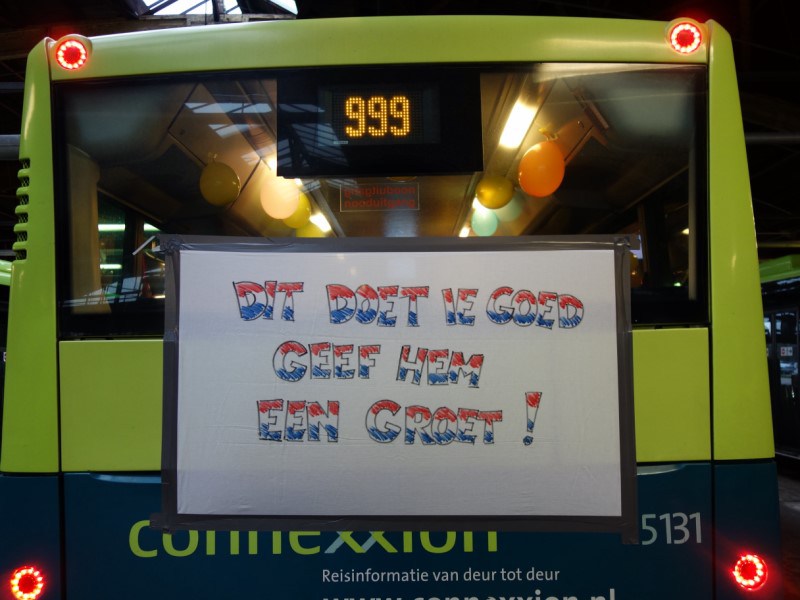 999
nooduitgang
DIT DOET IE GOED
GEEF HEM
EEN GROET!
connexxion
5131
Reisinformatie van deur tot deur
www.connexxion.nl